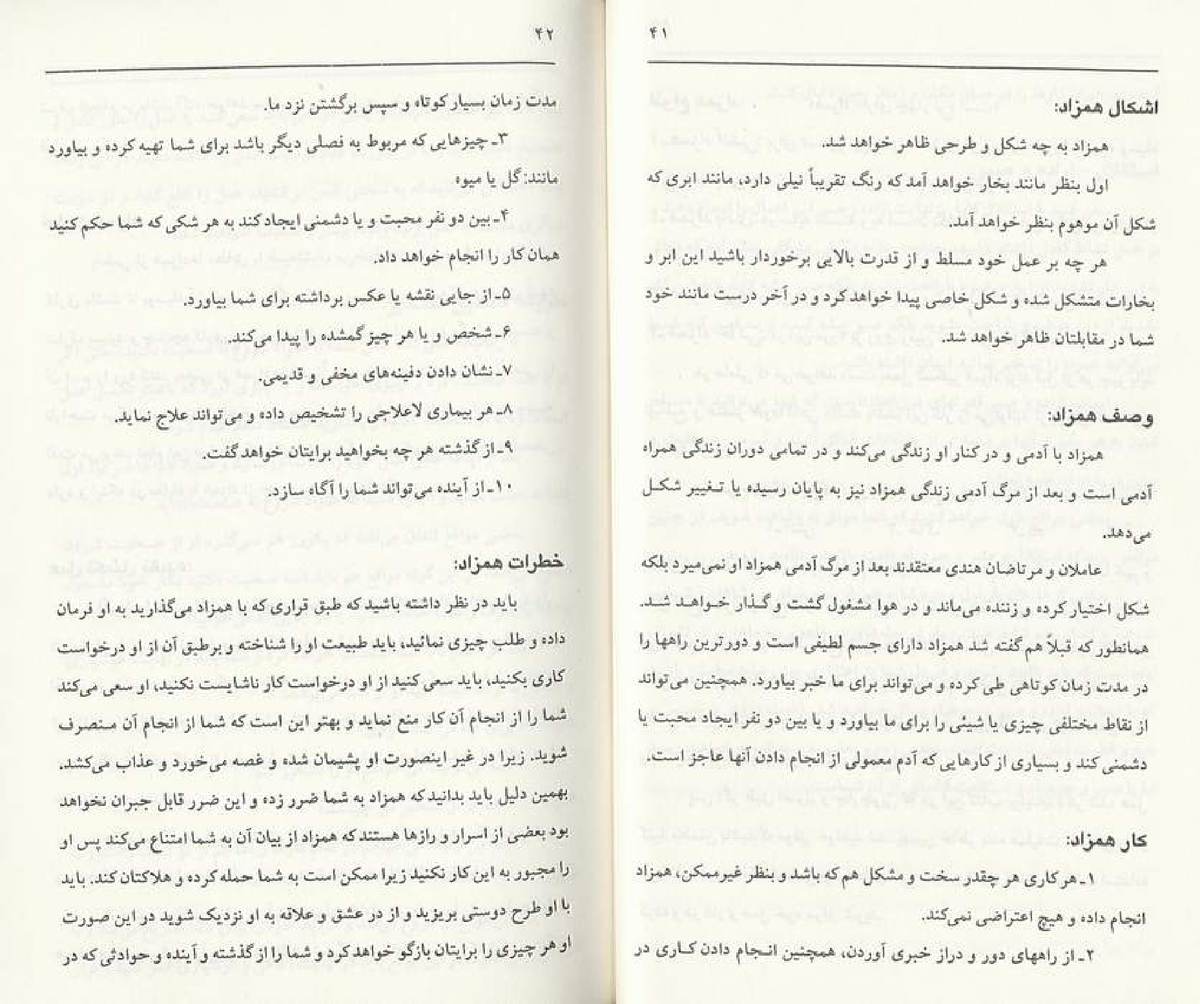 ۴۱
اشکال همزاد:
همزاد به چه شکل و طرحی ظاهر خواهد شد.
اول بنظر مانند بخار خواهد آمد که رنگ تقریباً نیلی دارد، مانند ابری که
شکل آن موهوم بنظر خواهد آمد.
هر چه بر عمل خود مسلط و از قدرت بالایی برخوردار باشید این ابر و
بخارات متشکل شده و شکل خاصی پیدا خواهد کرد و در آخر درست مانند خود
شما در مقابلتان ظاهر خواهد شد.
وصف همزاد:
همزاد با آدمی و در کنار او زندگی می‌کند و در تمامی دوران زندگی همراه
آدمی است و بعد از مرگ آدمی زندگی همزاد نیز به پایان رسیده یا تغییر شکل
می‌دهد.
عاملان و مرتاضان هندی معتقدند بعد از مرگ آدمی همزاد او نمی‌میرد بلکه
شکل اختیار کرده و زننده می‌ماند و در هوا مشغول گشت و گذار خواهد شد.
همانطور که قبلاً هم گفته شد همزاد دارای جسم لطیفی است و دورترین راهها را
در مدت زمان کوتاهی طی کرده و می‌تواند برای ما خبر بیاورد. همچنین می‌تواند
از نقاط مختلفی چیزی یا شیئی را برای ما بیاورد و یا بین دو نفر ایجاد محبت یا
دشمنی کند و بسیاری از کارهایی که آدم معمولی از انجام دادن آنها عاجز است.
کار همزاد:
۱ـ هر کاری هر چقدر سخت و مشکل هم که باشد و بنظر غیرممکن، همزاد
انجام داده و هیچ اعتراضی نمی‌کند.
۲ـ از راههای دور و دراز خبری آوردن، همچنین انجام دادن کاری در
۴۲
مدت زمان بسیار کوتاه و سپس برگشتن نزد ما.
۳ـ چیزهایی که مربوط به فصلی دیگر باشد برای شما تهیه کرده و بیاورد
مانند: گل یا میوه.
۴ـ بین دو نفر محبت و یا دشمنی ایجاد کند به هر شکی که شما حکم کنید
همان کار را انجام خواهد داد.
۵ـ از جایی نقشه یا عکس برداشته برای شما بیاورد.
۶ـ شخص و یا هر چیز گمشده را پیدا می‌کند.
۷ـ نشان دادن دفینه‌های مخفی و قدیمی.
۸ـ هر بیماری لاعلاجی را تشخیص داده و می‌تواند علاج نماید.
۹ـ از گذشته هر چه بخواهید برایتان خواهد گفت.
۱۰ـ از آینده می‌تواند شما را آگاه سازد.
خطرات همزاد:
باید در نظر داشته باشید که طبق قراری که با همزاد می‌گذارید به او فرمان
داده و طلب چیزی نمائید، باید طبیعت او را شناخته و برطبق آن از او درخواست
کاری بکنید، باید سعی کنید از او درخواست کار ناشایست نکنید، او سعی می‌کند
شما را از انجام آن کار منع نماید و بهتر این است که شما از انجام آن منصرف
شوید. زیرا در غیر اینصورت او پشیمان شده و غصه می‌خورد و عذاب می‌کشد.
بهمین دلیل باید بدانید که همزاد به شما ضرر زده و این ضرر قابل جبران نخواهد
بود بعضی از اسرار و رازها هستند که همزاد از بیان آن به شما امتناع می‌کند پس او
را مجبور به این کار نکنید زیرا ممکن است به شما حمله کرده و هلاکتان کند. باید
با او طرح دوستی بریزید و از در عشق و علاقه به او نزدیک شوید در این صورت
او هر چیزی را برایتان بازگو خواهد کرد و شما را از گذشته و آینده و حوادثی که در